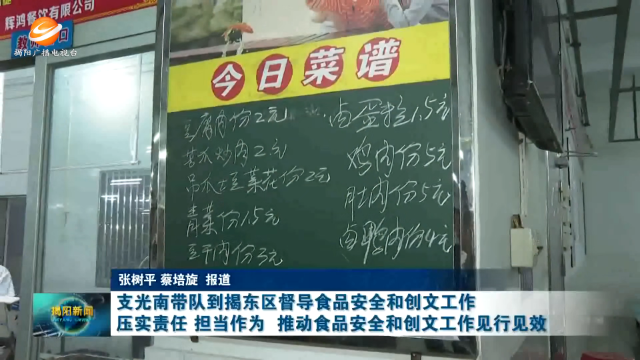 辉鸿餐饮有限公司
揭阳广播电视台
今日菜谱
豆腐肉份2元
卤蛋粒1.5元
炒肉2元
鸡肉份5元
豆菜花份2元
肚肉份5元
青菜份1.5元
卤鸭肉份4元
豆干肉份3元
张树平 蔡培旋 报道
揭阳新闻
支光南带队到揭东区督导食品安全和创文工作
压实责任 担当作为 推动食品安全和创文工作见行见效